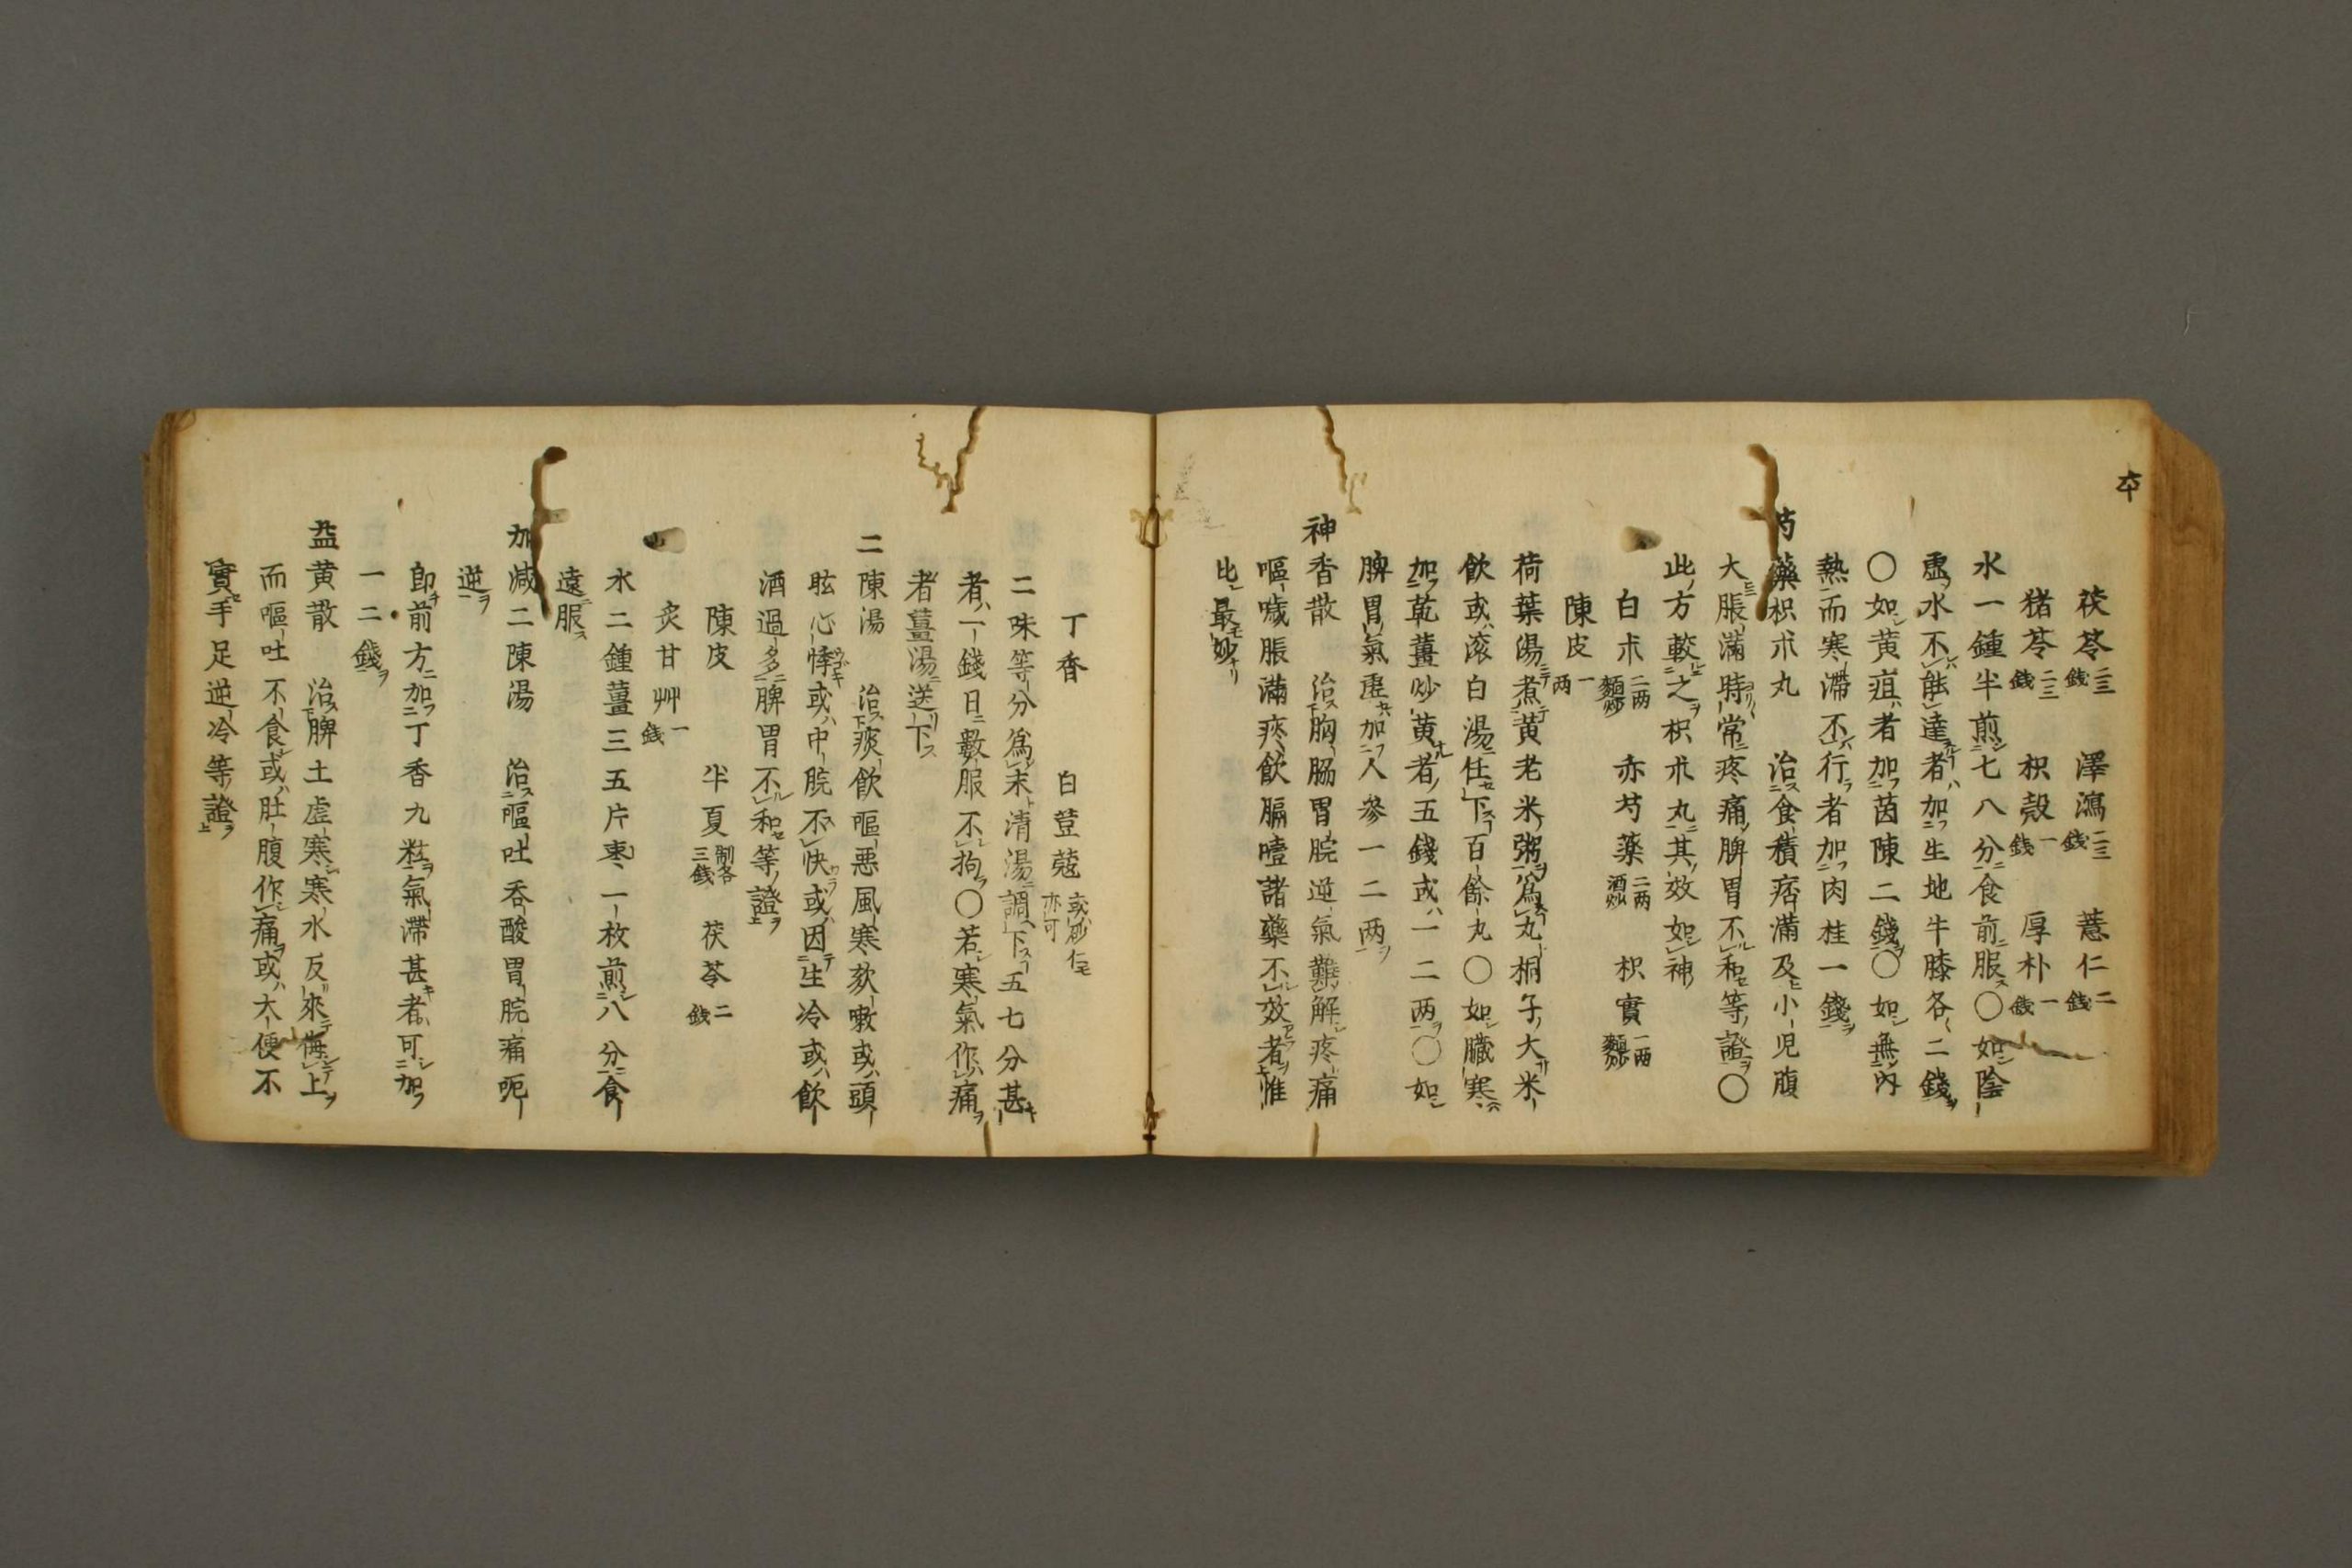 茯苓二三錢　澤瀉二三錢　薏仁二錢
猪苓二三錢　枳殼一錢　厚朴一錢
水一鍾半煎七八分食前服〇如陰
虛水不能達者加生地牛膝各二錢
〇如黄疸者加茵陳二錢〇如無內
熱而寒滯不行者加肉桂一錢
芍藥枳朮丸　治食積痞滿及小児腹
大脹滿時常疼痛脾胃不和等證〇
此方較之枳朮丸其效如神
白朮二両麵炒　赤芍藥二両酒炒　枳實一両麵炒
陳皮一両
荷葉湯煮黄老米粥為丸桐子大米
飲或滚白湯任下百餘丸〇如臓寒
加乾薑炒黄者五錢或一二両〇如
脾胃氣虛加人參一二両
神香散　治胸腸胃脘逆氣難解疼痛
嘔噦脹滿痰飲膈噎諸藥不效者惟
比最妙
丁香　白荳蔻或炒仁亦可
二味等分為末清湯調下五七分甚
者一錢日數服不拘〇若寒氣作痛
者薑湯送下
二陳湯　治痰飲嘔惡風寒欬嗽或頭
眩心悸或中脘不快或因生冷或飲
酒過多脾胃不和等證
陳皮　半夏制各三錢　茯苓二錢
炙甘艸一錢
水二鍾薑三五片棗一枚煎八分食
遠服
加減二陳湯　治嘔吐呑酸胃脘痛呃
逆
即前方加丁香九粒氣滯甚者可加
一二錢
益黄散　治脾土虛寒寒水反來侮上
而嘔吐不食或肚腹作痛或大便不
實手足逆冷等證